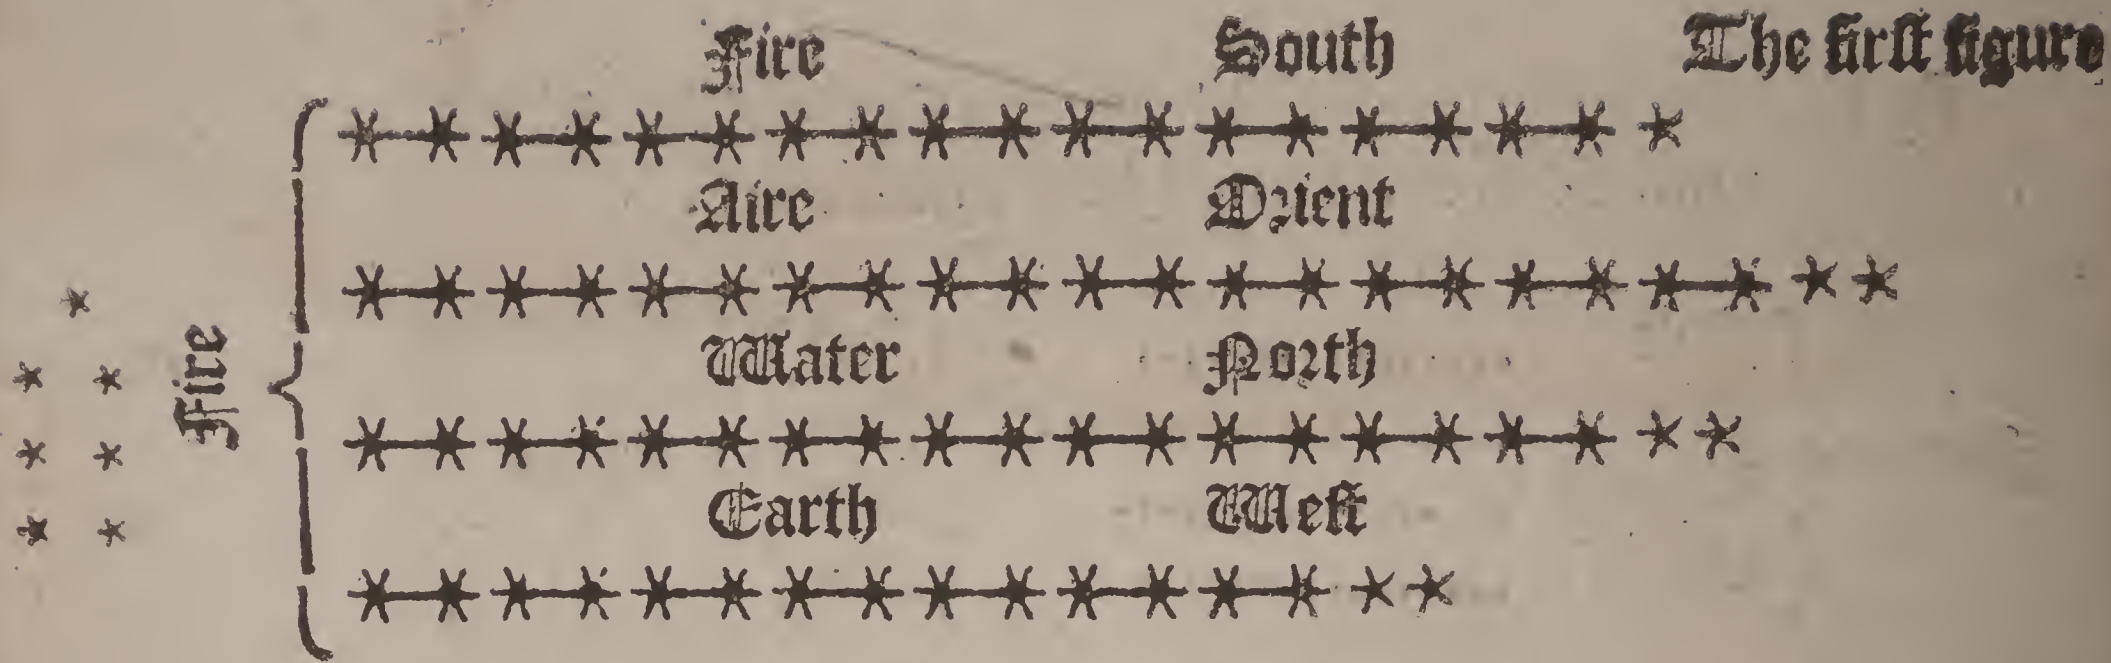 Fire South The firſt figure
Aire Orient
Fire
Water North
Earth Weſt